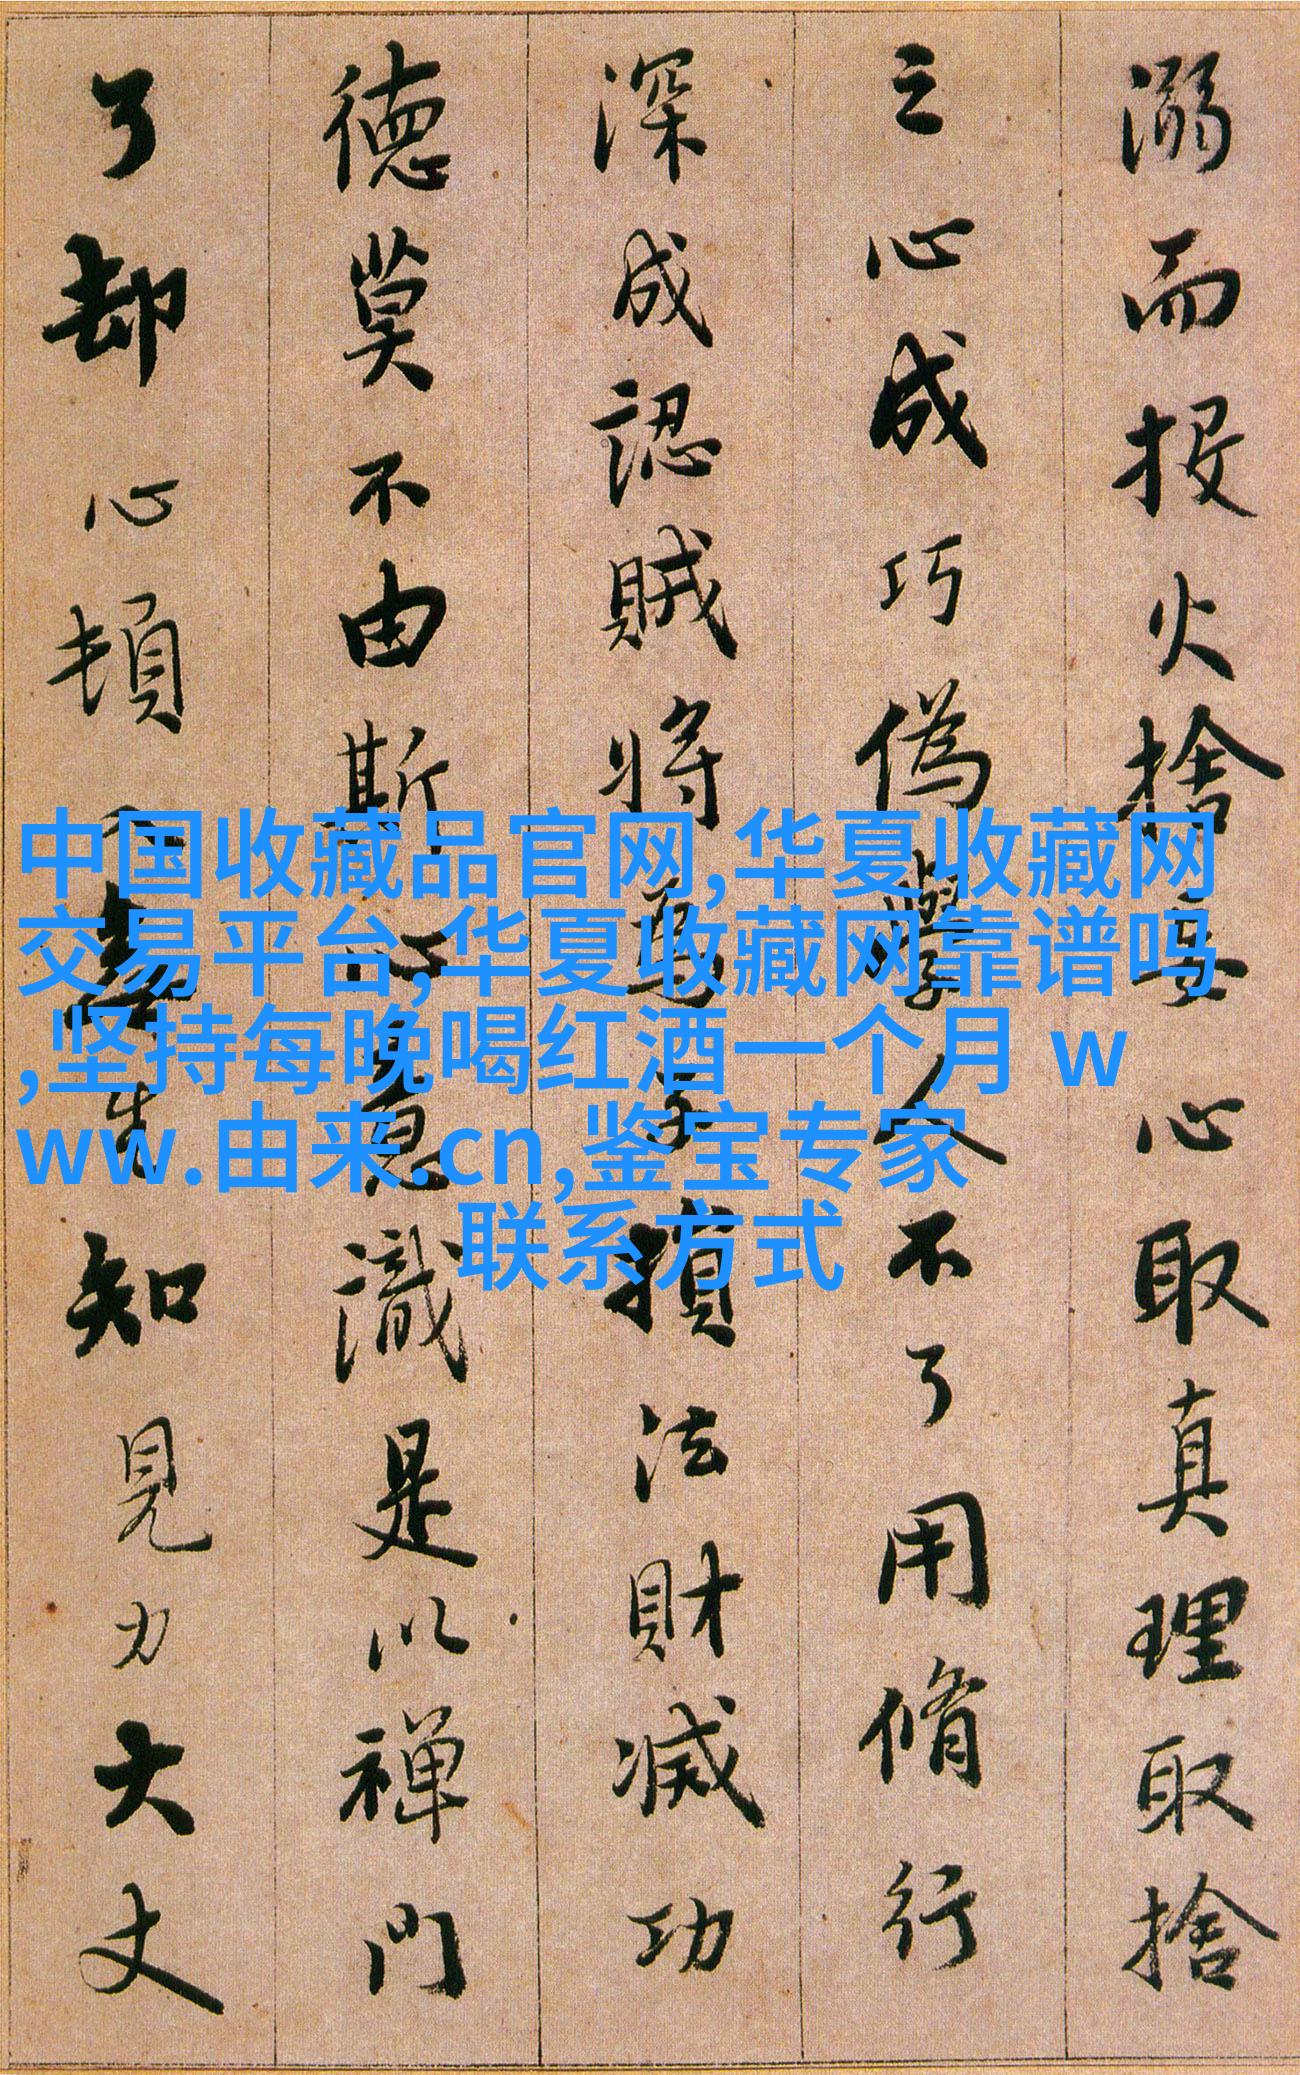 溺而投火捨妄心取真理取捨
之心成巧偽學人不了用脩行
深成認賊將為子損法財滅功
德莫不由斯心意識是以禪門
了却心頓入無生知見力大丈
中国收藏品官网,华夏收藏网
交易平台,华夏收藏网靠谱吗
,坚持每晚喝红酒一个月 w
ww.由来.cn,鉴宝专家
联系方式